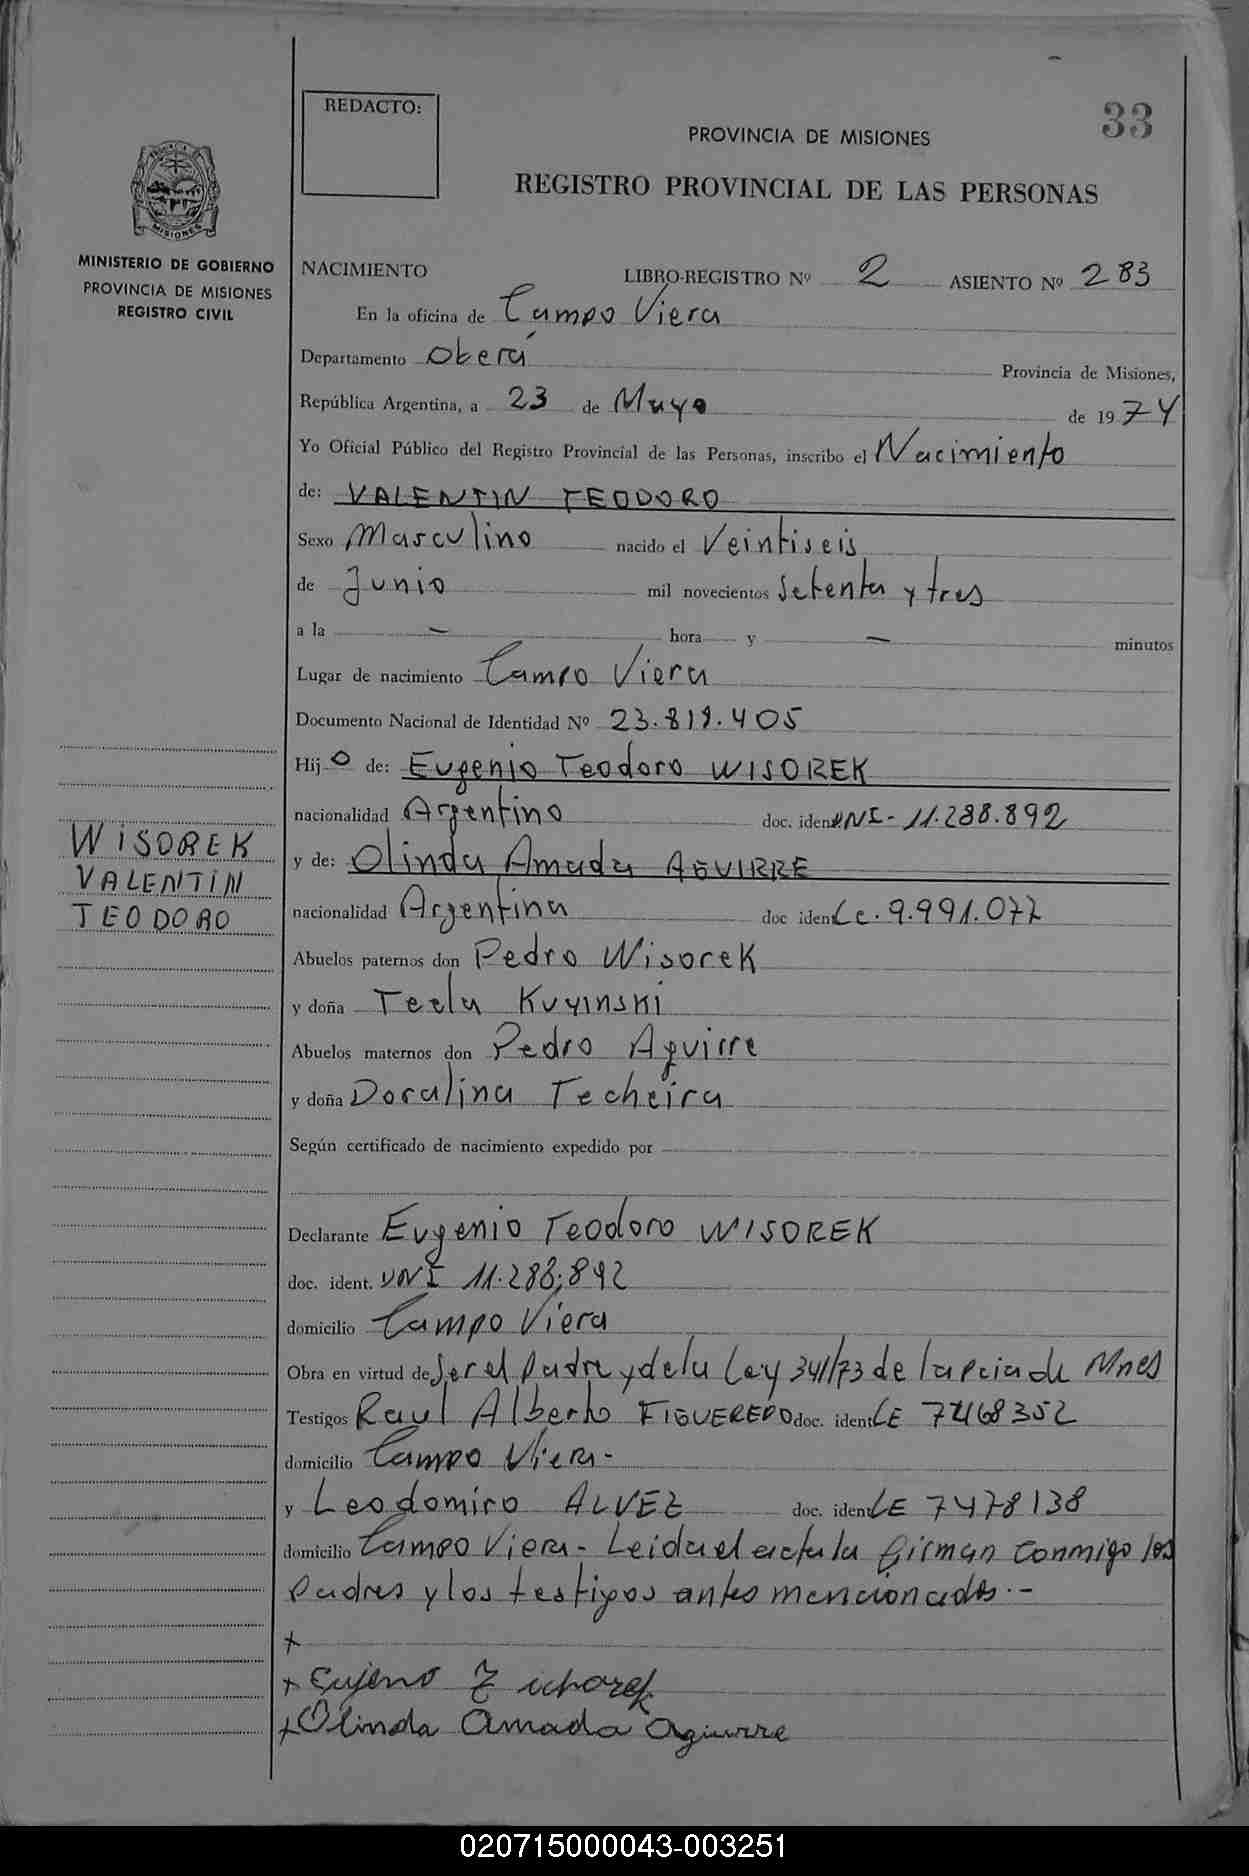 REDACTO:
33
PROVINCIA DE MISIONES
REGISTRO PROVINCIAL DE LAS PERSONAS
MISIONES
MINISTERIO DE GOBIERNO
PROVINCIA DE MISIONES
REGISTRO CIVIL
NACIMIENTO LIBRO-REGISTRO Nº 2 ASIENTO Nº 283
En la oficina de Campo Viera
Departamento Oberá Provincia de Misiones,
República Argentina, a 23 de Mayo de 1974
Yo Oficial Público del Registro Provincial de las Personas, inscribo el Nacimiento
de: VALENTIN TEODORO
Sexo Masculino nacido el Veintiseis
de Junio mil novecientos setenta y tres
a la - hora y - minutos
Lugar de nacimiento Campo Viera
Documento Nacional de Identidad Nº 23.819.405
Hijo de: Eugenio Teodoro WISOREK
nacionalidad Argentino doc. ident. DNI - 11.288.892
y de: Olinda Amada AGUIRRE
nacionalidad Argentina doc ident Lc. 9.991.077
WISOREK
VALENTIN
TEODORO
Abuelos paternos don Pedro Wisorek
y doña Tecla
Abuelos maternos don Pedro Aguirre
y doña Doralina Techeira
Según certificado de nacimiento expedido por
Declarante Eugenio Teodoro WISOREK
doc. ident. DNI 11.288.892
domicilio Campo Viera
Obra en virtud de Ser el padre y de la Ley 341/73 de la Pcia de Mnes
Testigos Raul Alberto FIGUEREDO doc. ident LE 7468352
domicilio Campo Viera -
y Leodomiro ALVEZ doc. ident LE 7478138
domicilio Campo Viera - Leida el acta la firman conmigo los
padres y los testigos antes mencionados. -
+
+ Eujeno
+ Olinda Amada Aguirre
020715000043-003251